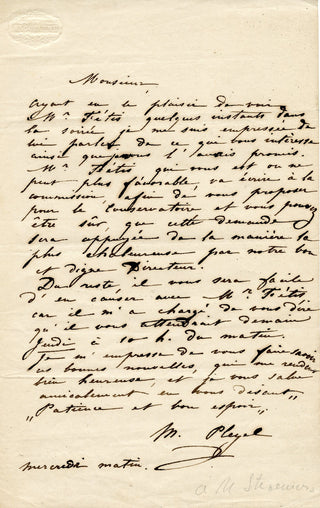 Monsieur,
Ayant eu le plaisir de voir
Mr Fétis quelques instants dans
la soirée je me suis empressée de
lui parler de ce que vous intéresse
ainsi que je vous l'avais promis.
Mr Fétis qui vous est on ne
peut plus favorable, va écrire à la
commission, afin de vous proposer
pour le conservatoire et vous pouvez
être sûr, que cette demande
sera appuyée de la manière la
plus chaleureuse par notre bon
et digne Directeur.
Du reste, il vous sera facile
d'en causer avec Mr Fétis
car il m'a chargé de vous dire
qu'il vous attendrait demain
Jeudi à 10 h. du matin.
Je m'empresse de vous faire savoir
ces bonnes nouvelles, qui me rendent
bien heureuse, et je vous salue
amicalement en vous disant „
„ Patience et bon espoir „
M. Pleyel
mercredi matin.
a M